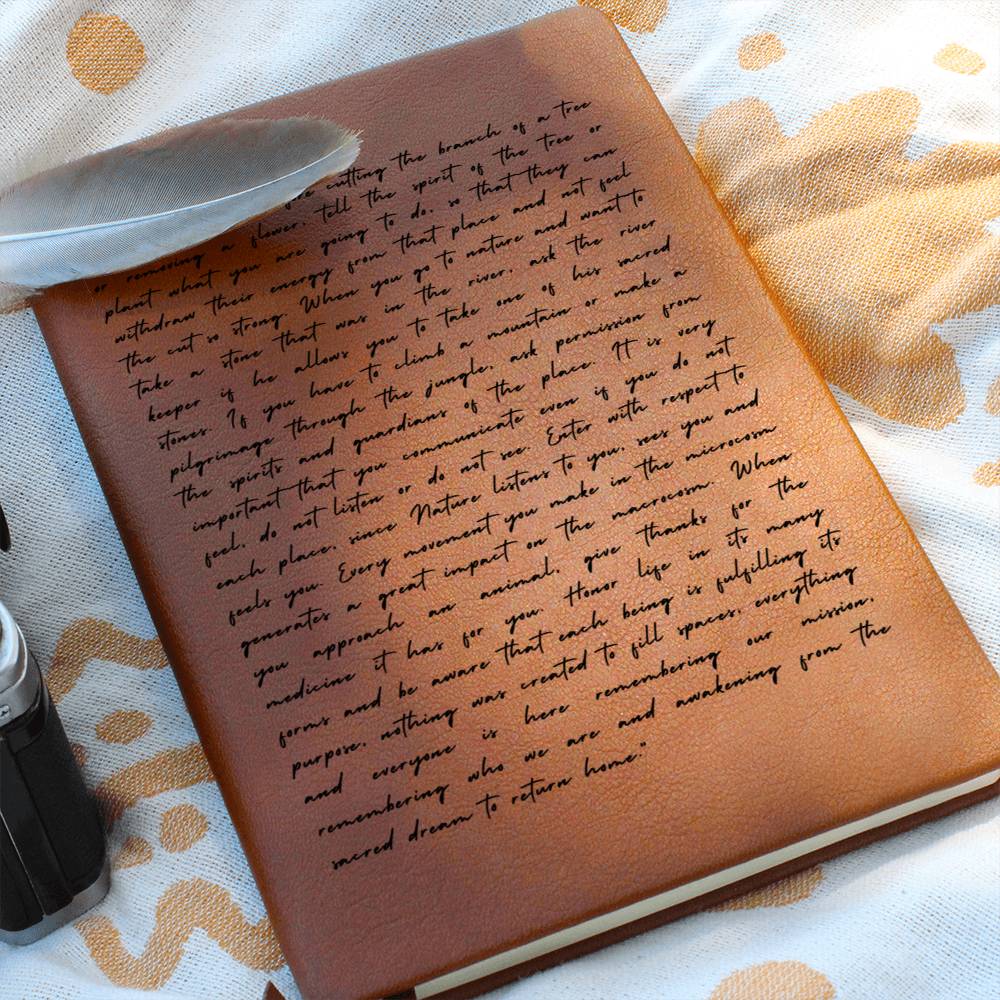 cutting the branch of a tree
or removing a flower, tell the spirit of the tree or
plant what you are going to do, so that they can
withdraw their energy from that place and not feel
the cut so strong. When you go to nature and want to
take a stone that was in the river, ask the river
keeper if he allows you to take one of his sacred
stones. If you have to climb a mountain or make a
pilgrimage through the jungle, ask permission from
the spirits and guardians of the place. IT is very
important that you communicate even if you do not
feel, do not listen or do not see. Enter with respect to
each place, since Nature listens to you, sees you and
feels you. Every movement you make in the microcosm
generates a great impact on the macrocosm. When
you approach an animal, give thanks for the
medicine it has for you. Honor life in its many
forms and be aware that each being is fulfilling its
purpose, nothing was created to fill spaces, everything
and everyone is here remembering our mission,
remembering who we are and awakening from the
sacred dream to return home."